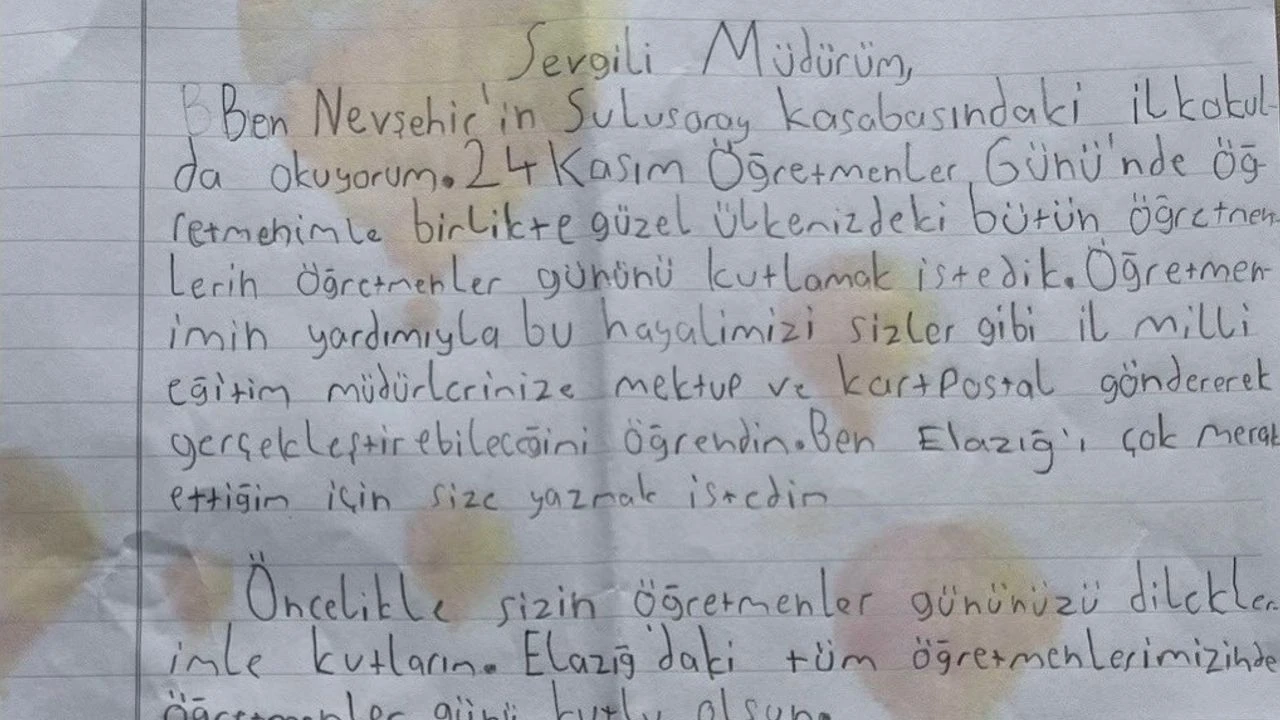 Sevgili Müdürüm,
Ben Nevşehir'in Sulusaray kasabasındaki ilkokul-
da okuyorum. 24 Kasım Öğretmenler Günü'nde öğ-
retmenimle birlikte güzel ülkenizdeki bütün öğretmen
lerin öğretmenler gününü kutlamak istedik. Öğretmen-
imin yardımıyla bu hayalimizi sizler gibi il milli
eğitim müdürlerinize mektup ve kartpostal göndererek
gerçekleştirebileceğini öğrendim. Ben Elazığ'ı çok merak
ettiğim için size yazmak istedim
Öncelikle sizin öğretmenler gününüzü dilekler
imle kutlarım. Elazığ'daki tüm öğretmenlerimizinde
öğretmenler günü kutlu olsun.